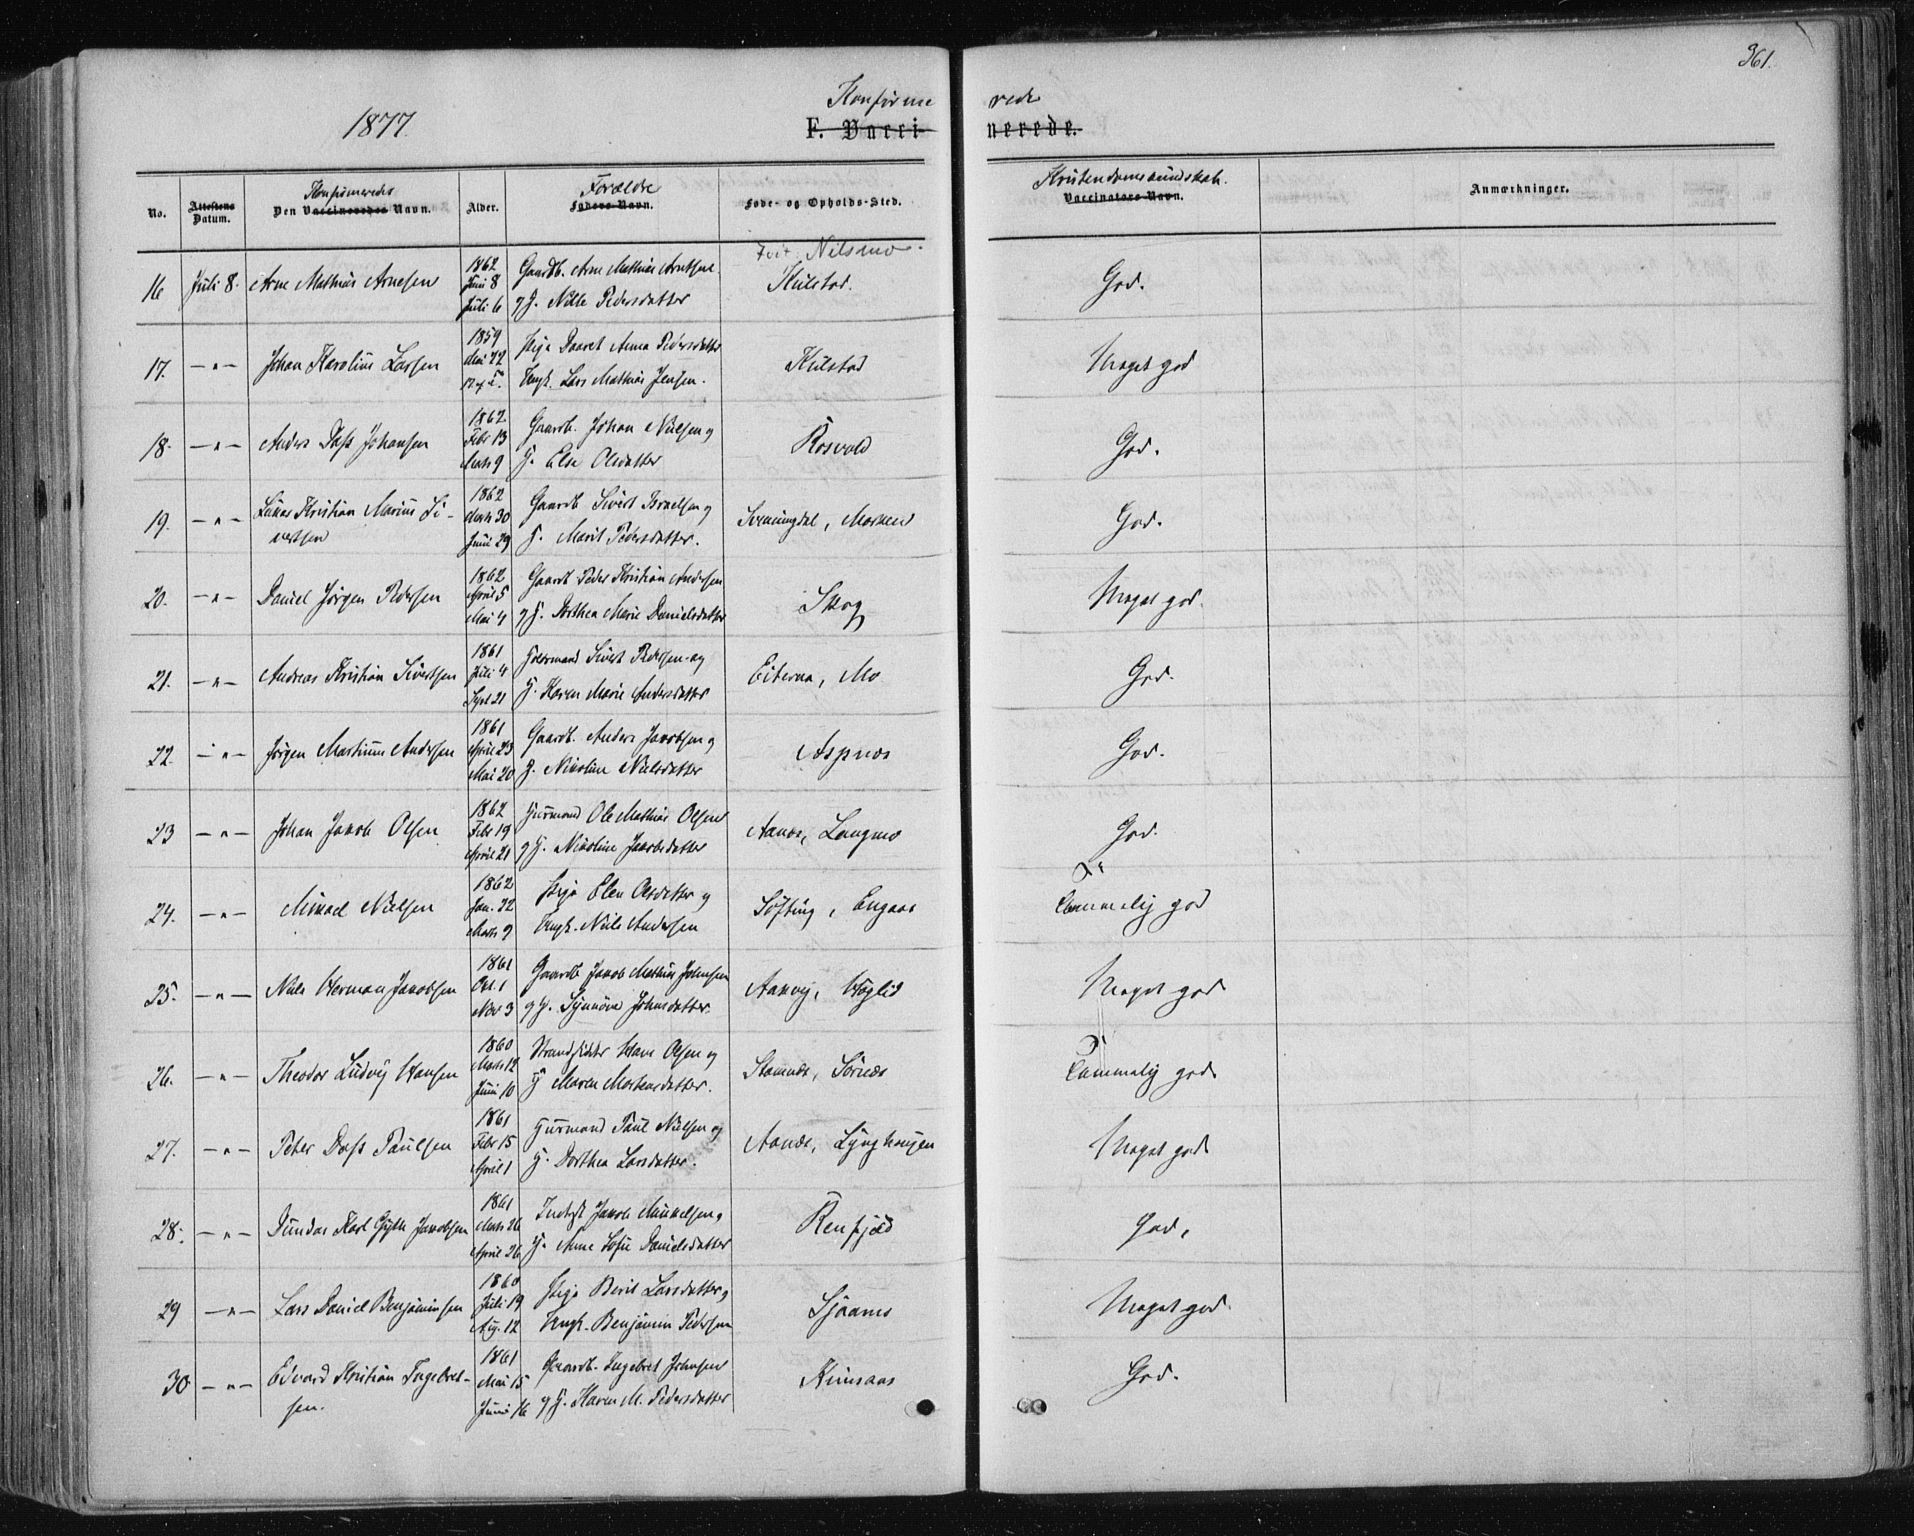 361.
1877.
Konfirme rede
F. Vacci nerede.
No.
Attestens Datum.
Konfirmeredes
Den Vaccineredes Navn.
Alder.
Forældre
Faders Navn.
Føde- og Opholds-Sted.
Kristendomskundskab.
Vaccinators Navn.
Anmærkninger.
1862 Født. Nilsmo.
16 Juli 8. Arne Mathias Arnesen Juni 8 Gaardb. Arne Mathias Arntsen Kulstad. God.
Juli 6 og H. Nille Pedersdatter
1859
17. —"— Johan Karolius Larsen Mai 22 Pige Anna Pedersdatter Kulstad Meget god
Ungk. Lars Mathias Jensen.
1862
18. —"— Anders Dass Johansen Febr 13 Gaardb. Johan Nielsen og Rosvold God.
Marts 9 H. Else Olsdatter
1862
19. —"— Lukas Kristian Marius Si- Marts 30 Gaardb Sivert Israelsen og Svenningdal, Mosken God.
vertsen Juni 29 H. Marit Pedersdatter.
1862
20. —"— Daniel Jørgen Pedersen April 5 Gaardb Peder Kristian Andersen Skog Meget god.
Mai 4 og H. Dorthea Marie Danielsdatter
1861
21. —"— Andreas Kristian Sivertsen Juli 4 Sivert Pedersen og Eiteraa, Mo God.
Sept 21 H. Karen Marie Andersdatter
1861
22. —"— Jørgen Martinus Andersen April 23 Gaardb. Anders Jakobsen og Aspnes God.
Mai 20 H. Nikoline Nielsdatter
1862
23 —"— Johan Jakob Olsen Febr 19 Huusmand Ole Mathias Olsen Aanes, Langmo God.
April 21 og H. Nikoline Jakobsdatter
1862
24. —"— Mikael Nielsen Jan. 22 Pige Elen Olsdatter og Søfting, Engaas Temmelig god
Marts 9 Ungk. Niels Andersen
1861
25. —"— Niels Herman Jakobsen Okt. 1 Gaardb Jakob Mathias Johnsen Aakvig, Høglid Meget god
Nov 3 og H. Synnøve Johnsdatter.
1860
26. —"— Theodor Ludvig Hansen Marts 12 Strandsidder Hans Olsen og Stamnes, Sørnes Temmelig god.
Juni 10 H Maren Mortensdatter.
1861
27. —"— Peter Dass Paulsen Febr 15 Huusmand Paul Nielsen og Aanes, Lynghaugen Meget god.
April 1 H. Dorthea Larsdatter.
1861
28. —"— Karl Jakobsen Marts 26 Inderst Jakob Mikkelsen og Renfjeld God,
April 26 H. Anne Sofie Danielsdatter
1860
29 —"— Lars Daniel Benjaminsen Juli 19 Pige Berit Larsdatter og Sjaanes Meget god.
Aug. 12 Ungk. Benjamin Pedersen
1861
30 —"— Edvard Kristian Ingebret- Mai 15 Gaardb. Ingebret Johnsen Kinnaas God.
sen. Juni 16 og H. Karen M. Pedersdatter